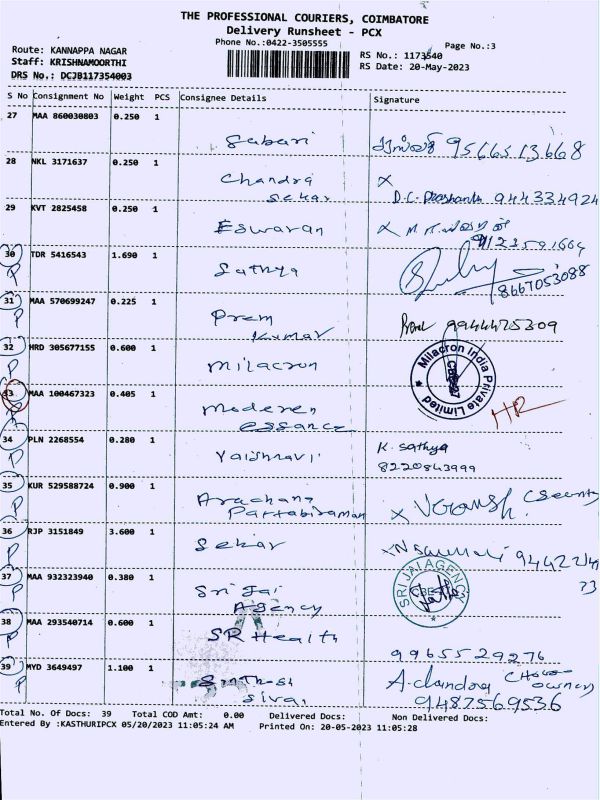 THE PROFESSIONAL COURIERS, COIMBATORE
Delivery Runsheet - PCX
Phone No.:0422-3505555
Page No.:3
Route: KANNAPPA NAGAR
Staff: KRISHNAMOORTHI
DRS No.: DCJB117354003
RS No.: 1173540
RS Date: 20-May-2023
S No Consignment No Weight PCS Consignee Details Signature
27 MAA 860030803 0.250 1 Sabari 9566513668
28 NKL 3171637 0.250 1 Chandra Sekar X D.C. Prashanth 944334924
29 KVT 2825458 0.250 1 Eswaran X 9123591664
30 P TDR 5416543 1.690 1 Sathya 8667053088
31 P MAA 570699247 0.225 1 Prem Kumar 9944475309
32 P HRD 305677155 0.600 1 Milacron Milacron India Private Limited
33 P MAA 100467323 0.405 1 Moderen essance HR
34 P PLN 2268554 0.280 1 Vaishnavi K. Sathya 8220843999
35 P KUR 529588724 0.900 1 Arachana Partabiraman X
36 P RJP 3151849 3.600 1 Sekar X
37 P MAA 932323940 0.380 1 Sri Jai Agency SRI JAI AGEN
38 P MAA 293540714 0.600 1 SR Health 9965529276
39 P MYD 3649497 1.100 1 Sivai A. chandra owner 9487569536
Total No. Of Docs: 39 Total COD Amt: 0.00 Delivered Docs: Non Delivered Docs:
Entered By :KASTHURIPCX 05/20/2023 11:05:24 AM Printed On: 20-05-2023 11:05:28